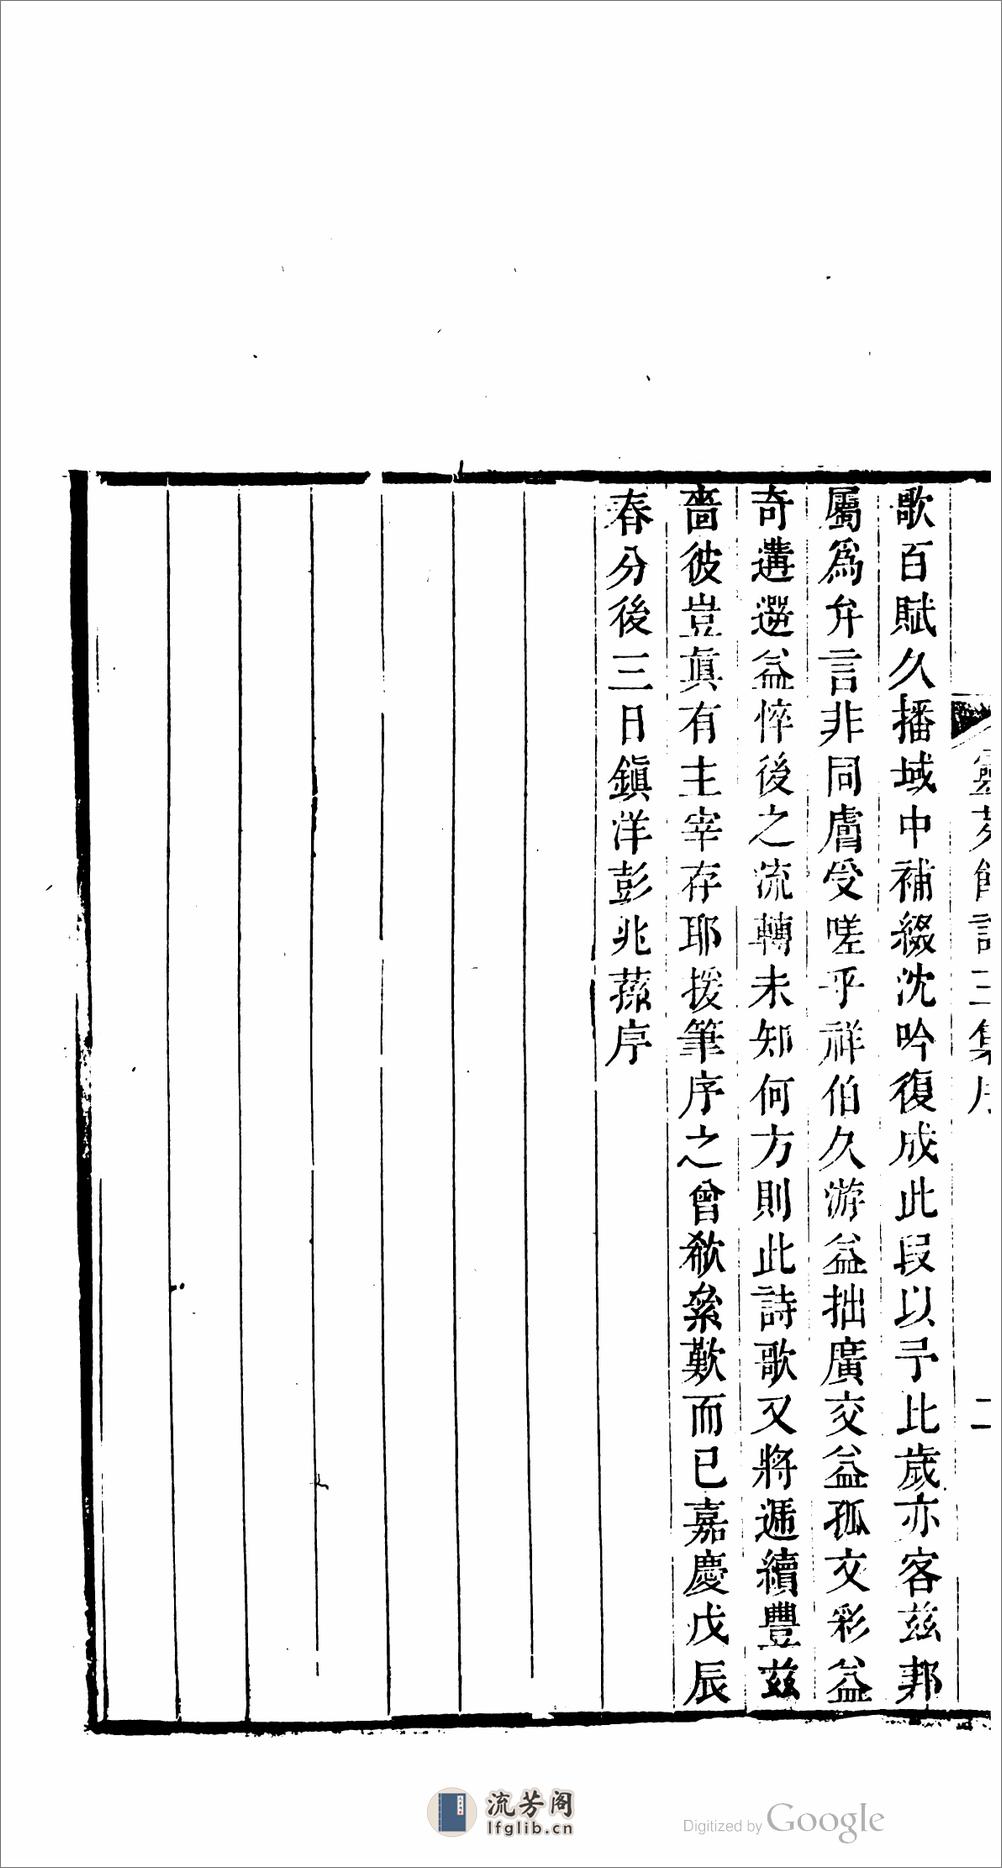 靈芬館詩三集序
二
歌百賦久播域中補綴沈吟復成此段以予比歲亦客兹邦
屬爲弁言非同膚受嗟乎祥伯久游益拙廣交益孤文彩益
奇遘遻益悴後之流轉未知何方則此詩歌又將遞續豐兹
嗇彼豈眞有主宰存耶援筆序之曾欷絫歎而已嘉慶戊辰
春分後三日鎭洋彭兆蓀序
流芳阁
lfglib.cn
Digitized by Google